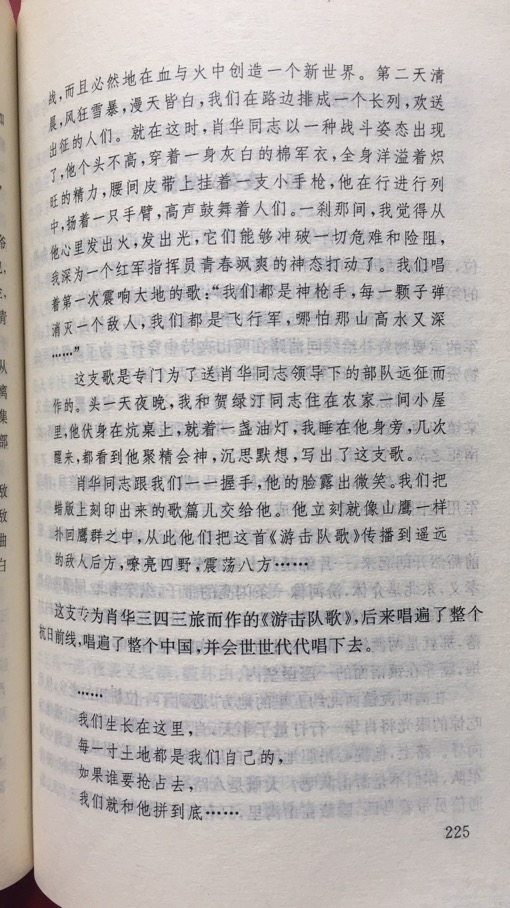 战，而且必然地在血与火中创造一个新世界。第二天清
晨，风狂雪暴，漫天皆白，我们在路边排成一个长列，欢送
出征的人们。就在这时，肖华同志以一种战斗姿态出现
了，他个头不高，穿着一身灰白的棉军衣，全身洋溢着炽
旺的精力，腰间皮带上挂着一支小手枪，他在行进行列
中，扬着一只手臂，高声鼓舞着人们。一刹那间，我觉得从
他心里发出火，发出光，它们能够冲破一切危难和险阻，
我深为一个红军指挥员青春飒爽的神态打动了。我们唱
着第一次震响大地的歌：“我们都是神枪手，每一颗子弹
消灭一个敌人，我们都是飞行军，哪怕那山高水又深
……”
这支歌是专门为了送肖华同志领导下的部队远征而
作的。头一天夜晚，我和贺绿汀同志住在农家一间小屋
里，他伏身在炕桌上，就着一盏油灯，我睡在他身旁，几次
醒来，都看到他聚精会神，沉思默想，写出了这支歌。
肖华同志跟我们一一握手，他的脸露出微笑。我们把
蜡版上刻印出来的歌篇儿交给他。他立刻就像山鹰一样
扑回鹰群之中，从此他们把这首《游击队歌》传播到遥远
的敌人后方，嘹亮四野，震荡八方……
这支专为肖华三四三旅而作的《游击队歌》，后来唱遍了整个
抗日前线，唱遍了整个中国，并会世世代代唱下去。
……
我们生长在这里，
每一寸土地都是我们自己的，
如果谁要抢占去，
我们就和他拼到底……
225